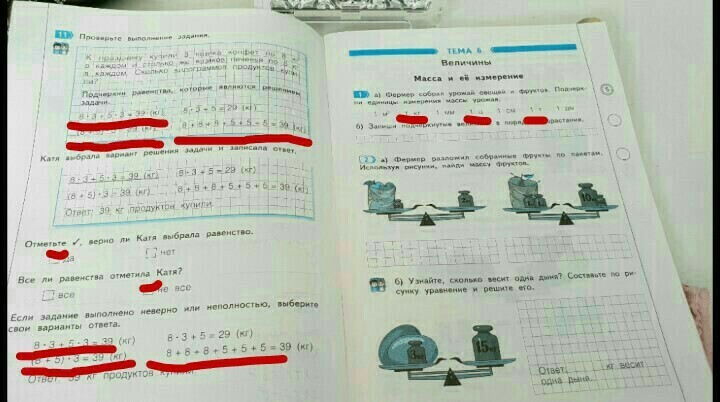 11 Проверьте выполнение задания.
К празднику купили 3 ящика конфет по 8 кг
в каждом и столько же ящиков печенья по 5 кг
в каждом. Сколько килограммов продуктов купи-
ли?
Подчеркни равенства, которые являются решением
задачи.
8 · 3 + 5 · 3 = 39 (кг) 8 · 3 + 5 = 29 (кг)
(кг) 8 + 8 + 8 + 5 + 5 + 5 = 39 (кг)
Катя выбрала вариант решения задачи и записала ответ.
8 · 3 + 5 · 3 = 39 (кг) 8 · 3 + 5 = 29 (кг)
(8 + 5) · 3 = 39 (кг) 8 + 8 + 8 + 5 + 5 + 5 = 39 (кг)
Ответ: 39 кг продуктов купили.
Отметьте ✓, верно ли Катя выбрала равенство.
да нет
Все ли равенства отметила Катя?
все не все
Если задание выполнено неверно или неполностью, выберите
свои варианты ответа.
8 · 3 + 5 · 3 = 39 (кг) 8 · 3 + 5 = 29 (кг)
(8 + 5) · 3 = 39 (кг) 8 + 8 + 8 + 5 + 5 + 5 = 39 (кг)
Ответ: 39 кг продуктов купили.
ТЕМА 6.
Величины
Масса и её измерение
1 а) Фермер собрал урожай овощей и фруктов. Подчерк-
ни единицы измерения массы урожая.
1 м 1 кг 1 мм 1 ц 1 см 1 т 1 дм
б) Запиши подчеркнутые в порядке возрастания.
2 а) Фермер разложил собранные фрукты по пакетам.
Используя рисунки, найди массу фруктов.
б) Узнайте, сколько весит одна дыня? Составьте по ри-
сунку уравнение и решите его.
3кг
15кг
Ответ: кг весит
одна дыня.